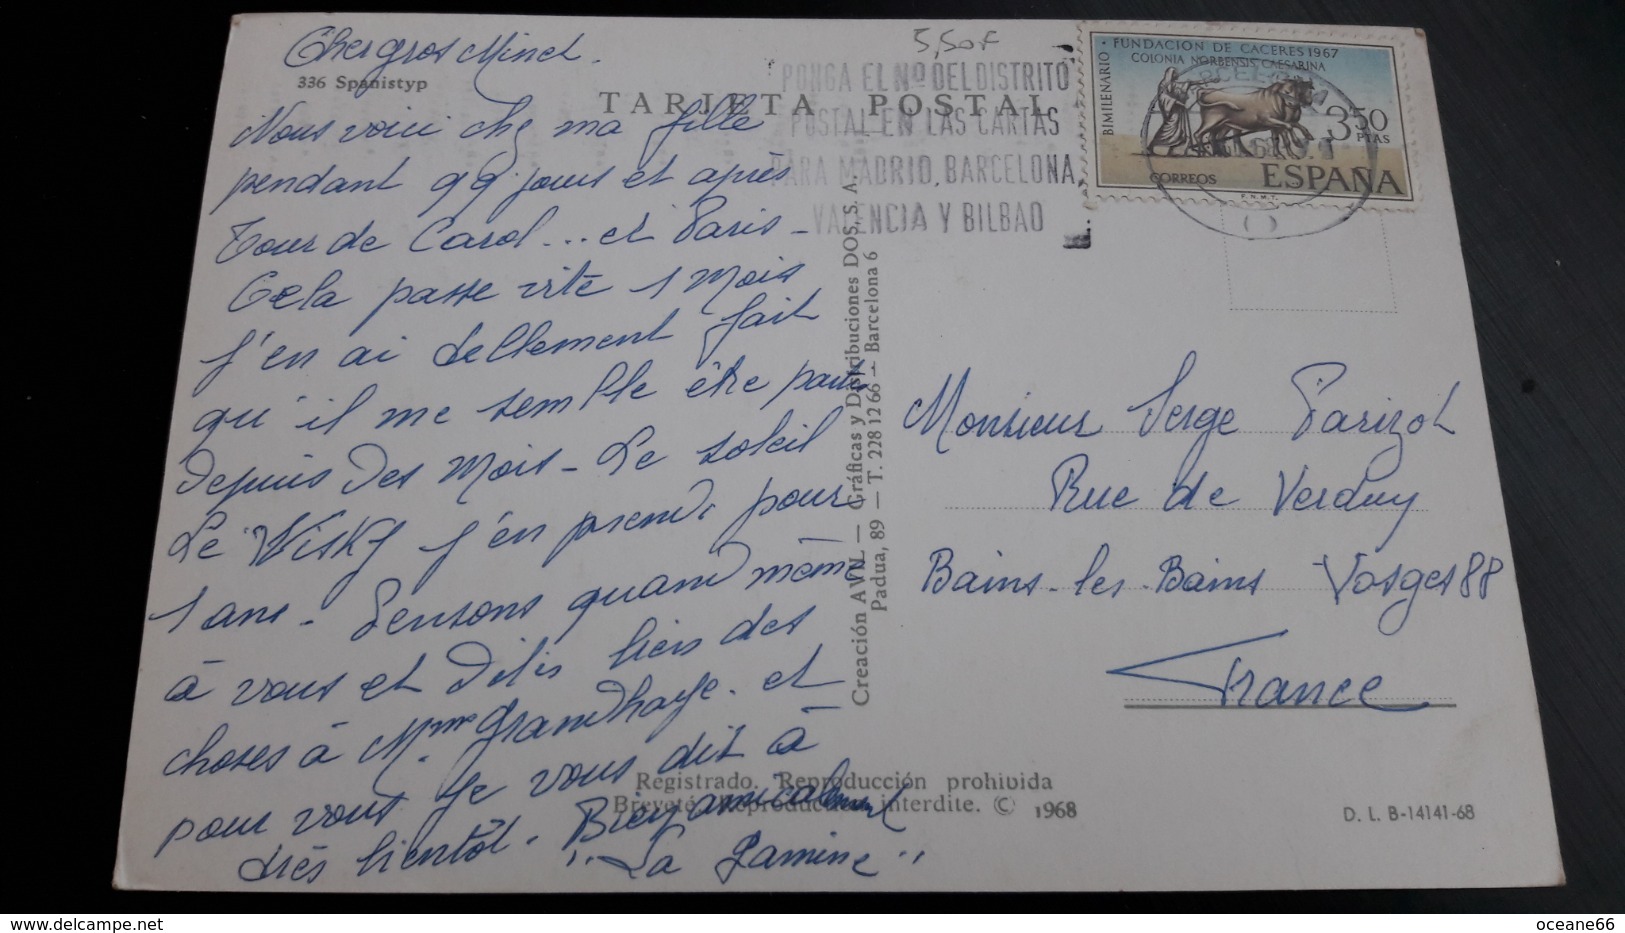 Cher gros Minet.
336 Spanistyp
TARJETA POSTAL
5,50F
PONGA EL Nº DEL DISTRITO
POSTAL EN LAS CARTAS
PARA MADRID, BARCELONA,
VALENCIA Y BILBAO
BIMILENARIO
FUNDACION DE CACERES 1967
COLONIA NORBENSIS CAESARINA
3,50
PTAS
CORREOS ESPAÑA
F.N.M.T.
Nous voici chez ma fille
pendant 99 jours et après
Tour de Carol... et Paris -
Cela passe vite 1 mois
j'en ai tellement fait
qu'il me semble être partie
depuis des mois - Le soleil
Le Wisky j'en prends pour
1 ans - Pensons quand même
à vous et dites bien des
choses à Mme Grandhaye. et
pour vous Je vous dit à
très bientôt. Bien amicalement
"La Gamine"
Creación AVIL — Gráficas y Distribuciones DOS, S. A.
Padua, 89 — T. 228 12 66 — Barcelona 6
Monsieur Serge Parizot
Rue de Verduy
Bains-les-Bains Vosges 88
France
Registrado. Reproducción prohibida
Breveté. Reproduction interdite. © 1968
D. L. B-14141-68
oceane66